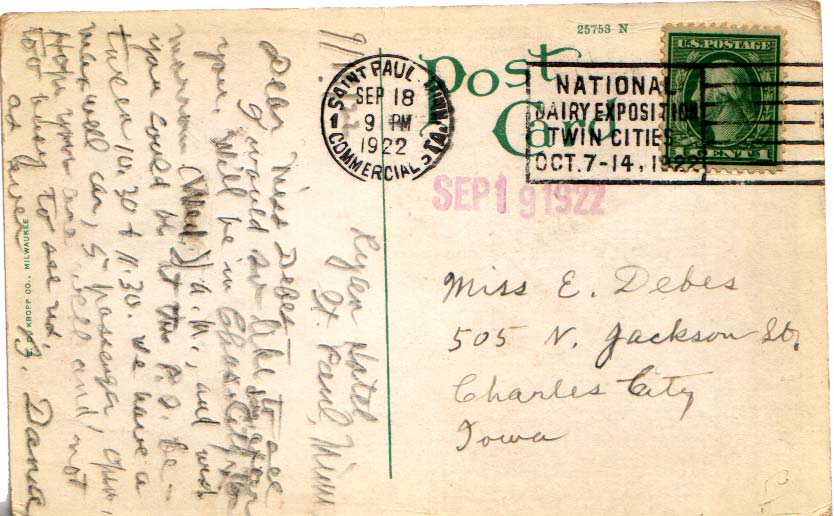 25753 N
Post
Card
SAINT PAUL, MINN.
SEP 18
9 PM
1922
1
COMMERCIAL STA.
NATIONAL
DAIRY EXPOSITION
TWIN CITIES
OCT. 7-14, 1922
U.S. POSTAGE
1 CENT 1
SEP 19 1922
Miss E. Debes
505 N. Jackson St.
Charles City
Iowa
Ryan Hotel
St. Paul, Minn
Dear Miss Debes
I would so like to see
you. Will be in Chas. City
morrow (Wed.) a.m., and wish
you could be at the P.O. be-
tween 10.30 & 11.30. We have a
maxwell car, 5 passenger, open,
Hope you are well and not
too busy to see us,
as ever B. Dana
E. C. KROPP CO., MILWAUKEE